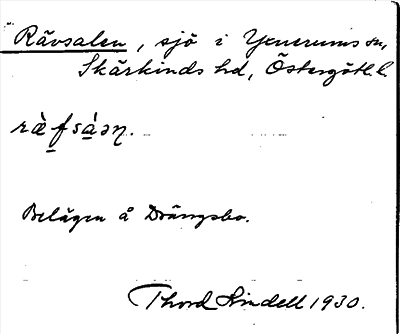 Rävsalen, sjö i Yxnerums sn,
Skärkinds hd, Östergötl. l.
rä̀fsá̱ən.
Belägen å Drängsbo.
Thord Lindell 1930.